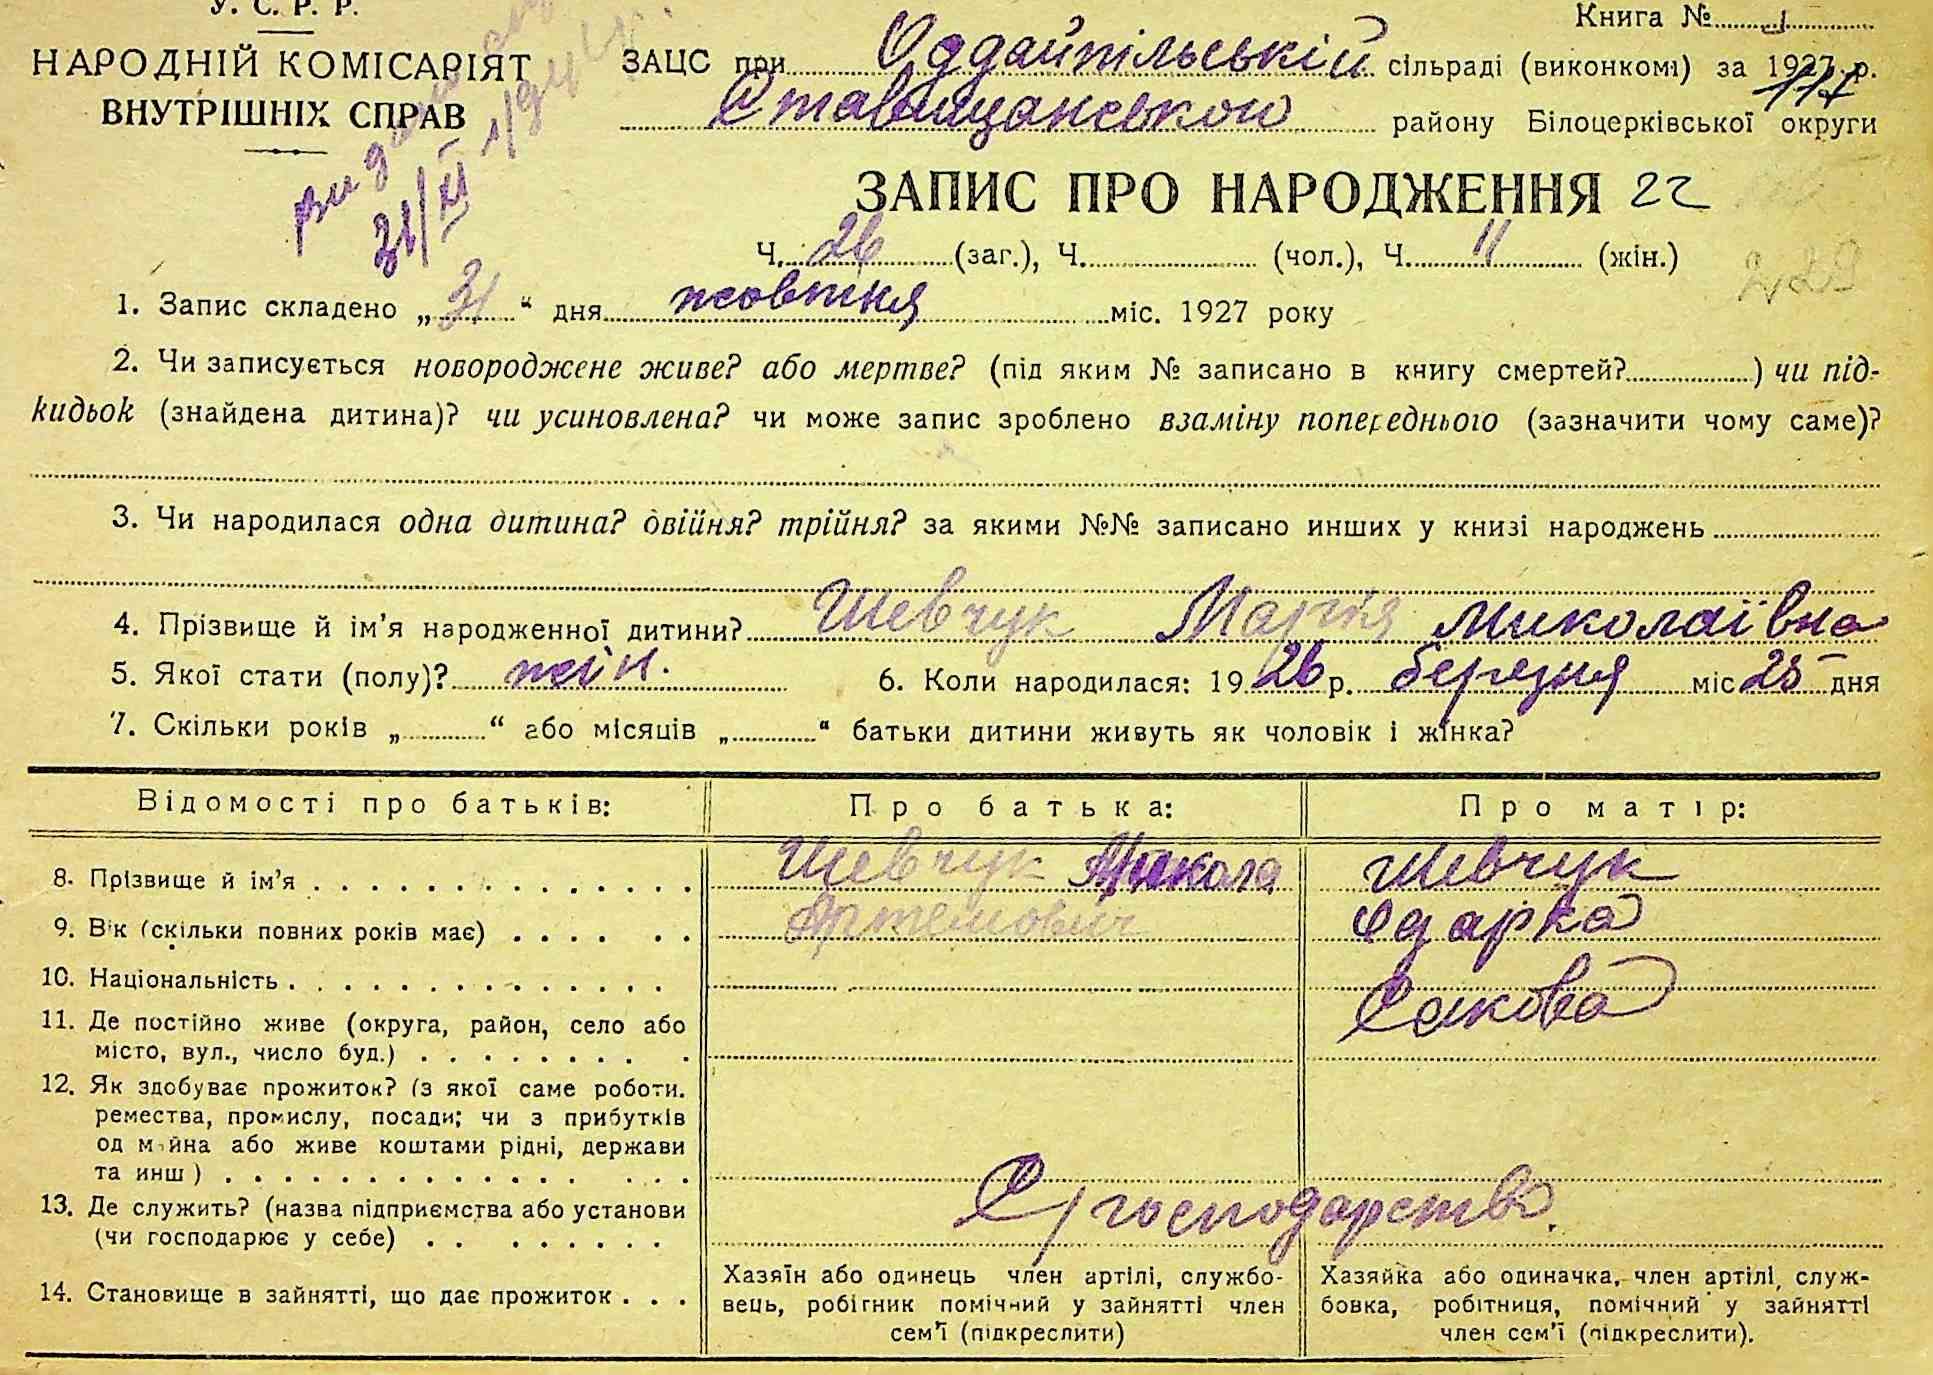 У. С. Р. Р.
НАРОДНІЙ КОМІСАРІЯТ
ВНУТРІШНІХ СПРАВ
31/XII
Книга № 1
ЗАЦС при Оддайпільській сільраді (виконкомі) за 1927 р.
117
Ставищанською району Білоцерківської округи
ЗАПИС ПРО НАРОДЖЕННЯ 22
Ч. 26 (заг.), Ч. (чол.), Ч. 11 (жін.)
229
1. Запис складено „ 31 “ дня жовтня міс. 1927 року
2. Чи записується новороджене живе? або мертве? (під яким № записано в книгу смертей? ) чи під-
кидьок (знайдена дитина)? чи усиновлена? чи може запис зроблено взаміну попереднього (зазначити чому саме)?
3. Чи народилася одна дитина? двійня? трійня? за якими №№ записано инших у книзі народжень
4. Прізвище й ім’я народженної дитини? Шевчук Марія Миколаївна
5. Якої стати (полу)? жін. 6. Коли народилася: 1926 р. березня міс 25 дня
7. Скільки років „ “ або місяців „ “ батьки дитини живуть як чоловік і жінка?
Відомості про батьків: Про батька: Про матір:
8. Прізвище й ім’я Шевчук Микола Шевчук
9. Вік (скільки повних років має) Артемович Одарка
10. Національність
11. Де постійно живе (округа, район, село або
місто, вул., число буд.)
12. Як здобуває прожиток? (з якої саме роботи.
ремества, промислу, посади; чи з прибутків
од майна або живе коштами рідні, держави
та инш )
13. Де служить? (назва підприємства або установи С/господарство.
(чи господарює у себе)
14. Становище в зайнятті, що дає прожиток
Хазяїн або одинець член артілі, службо-
вець, робітник помічний у зайнятті член
сем’ї (підкреслити)
Хазяйка або одиначка, член артілі, служ-
бовка, робітниця, помічний у зайнятті
член сем’ї (підкреслити).